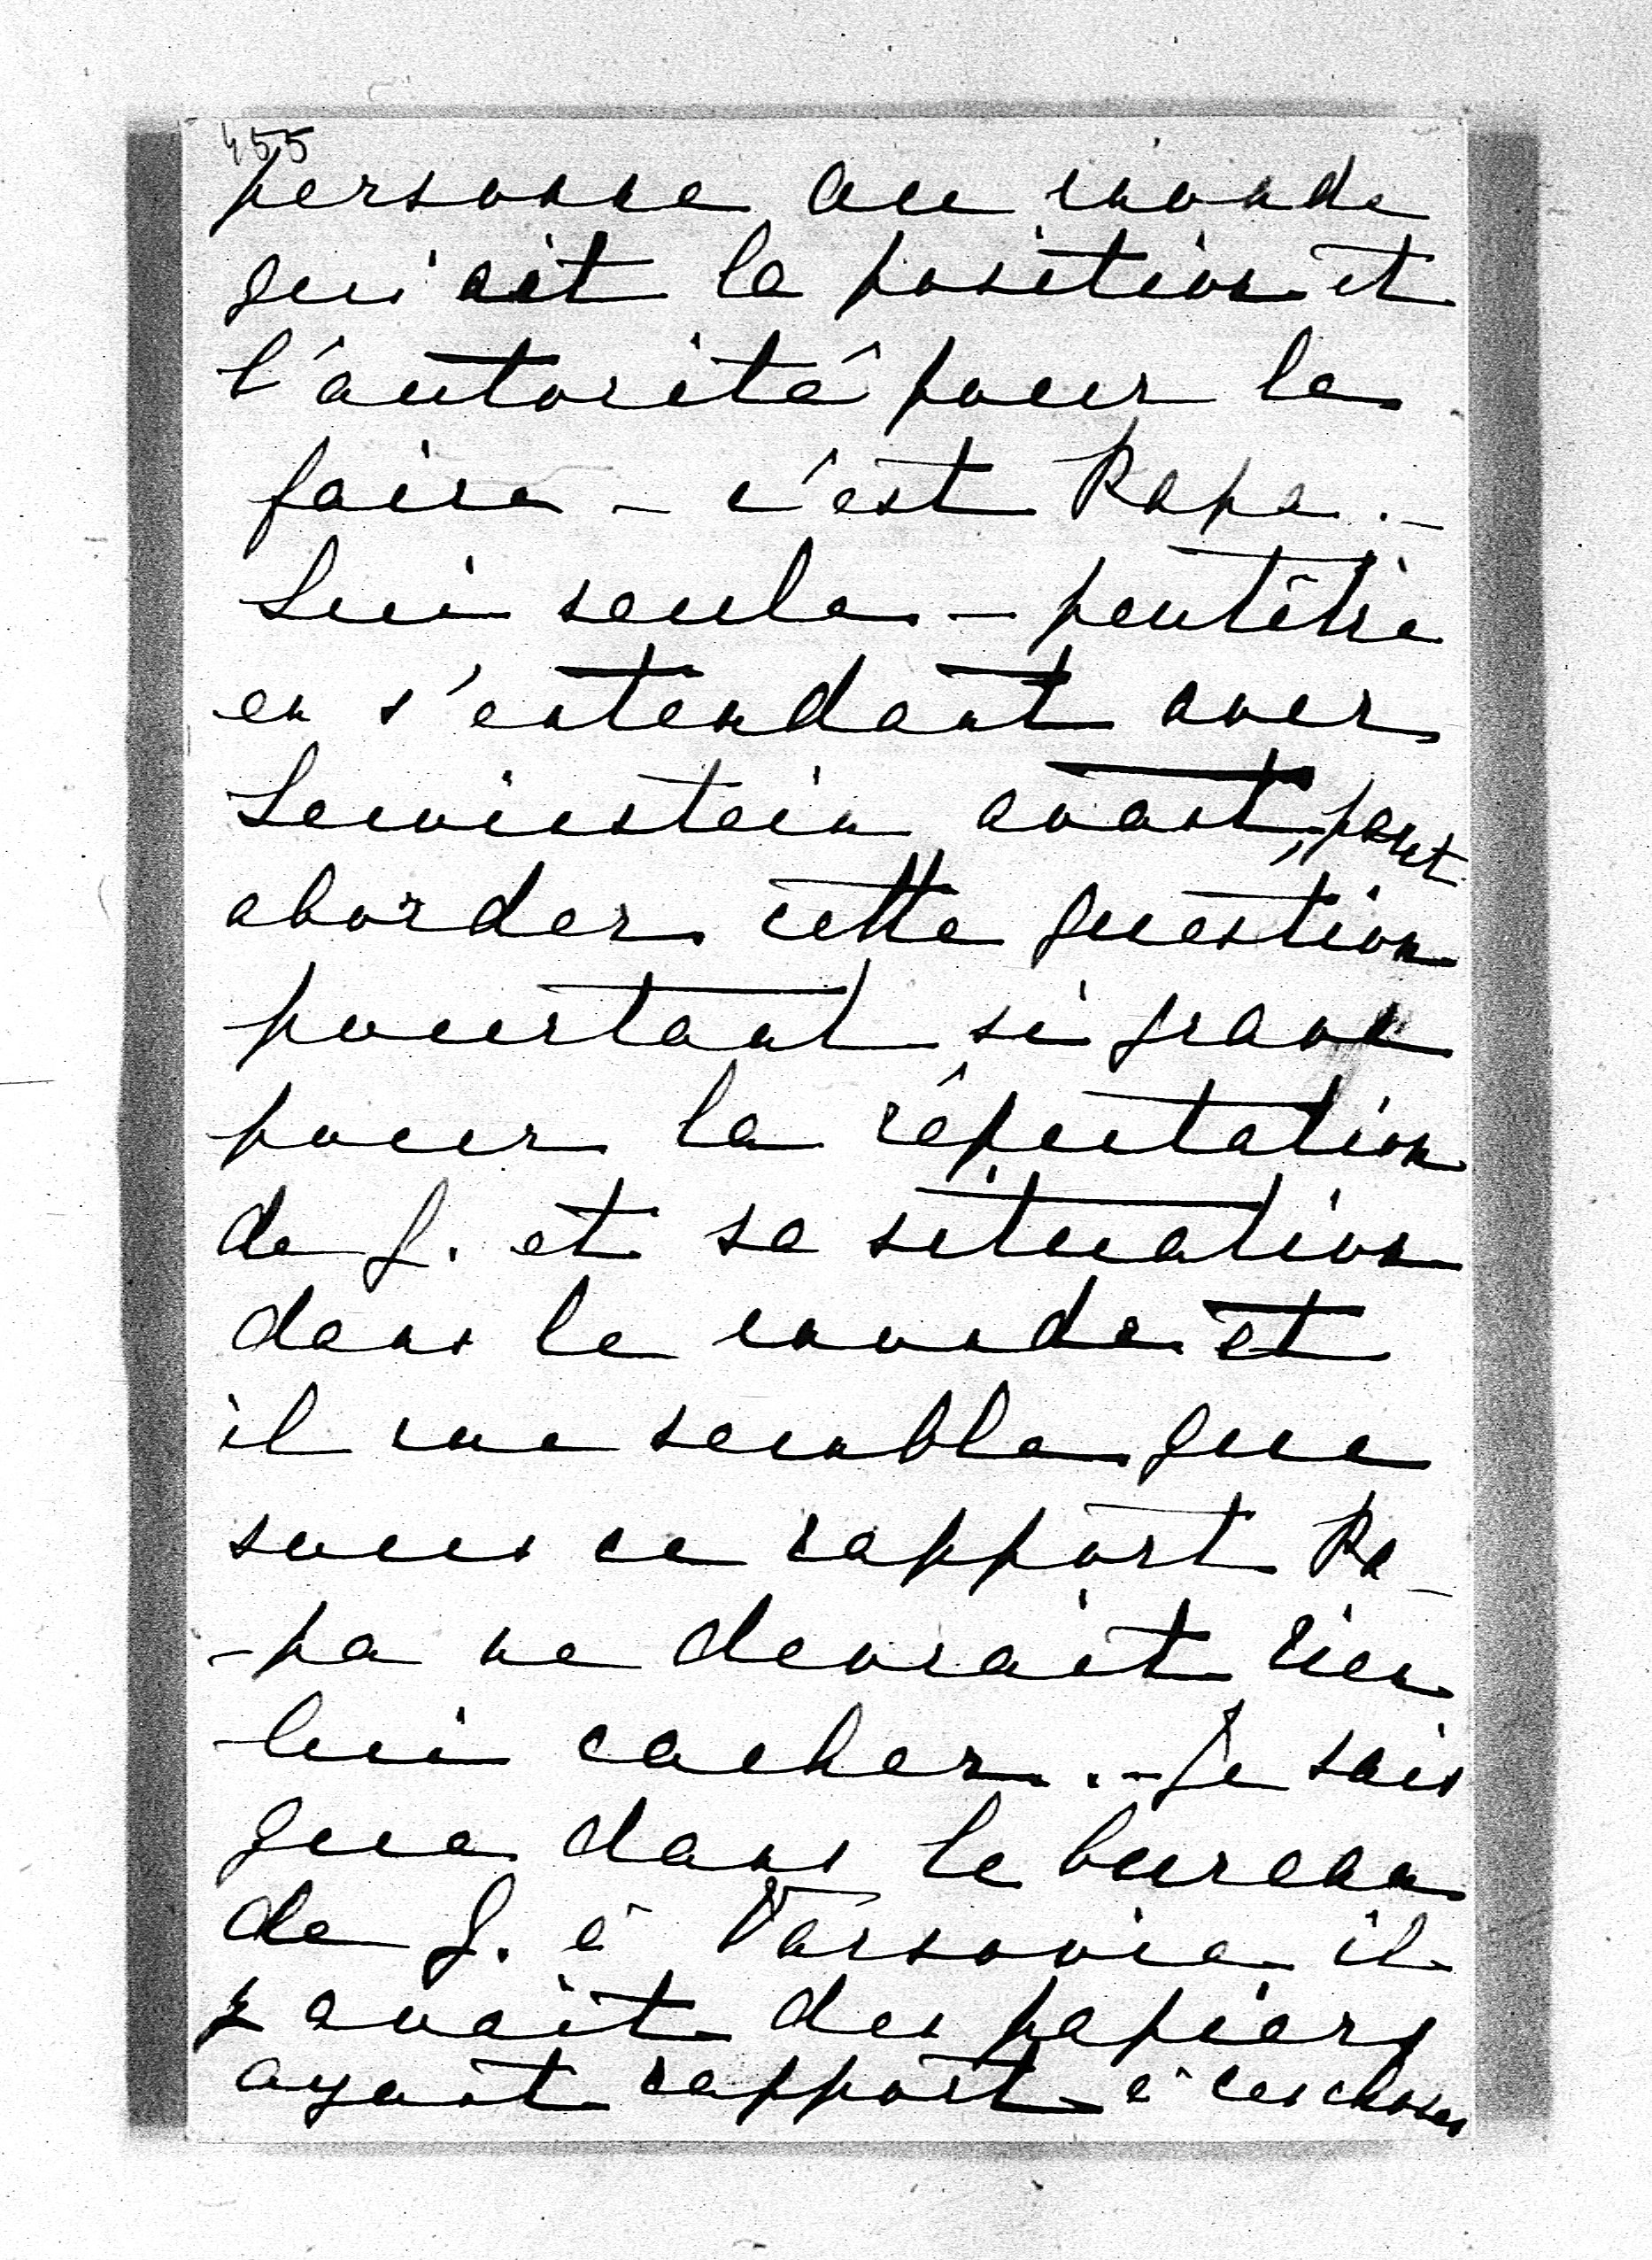 455
personne au monde
qui ait la position et
l'autorité pour le
faire - c'est Papa. -
Lui seule - peutêtre
en s'entendant avec
Lewinstein avant, peut
aborder cette question
pourtant si grave
pour la réputation
de J. et sa situation
dans le monde et
il me semble que
sous ce rapport Pa-
-pa ne devrait rien
lui cacher. - Je sais
que dans le bureau
de J. à Varsovie il
y avait des papiers
ayant rapport à ces choses